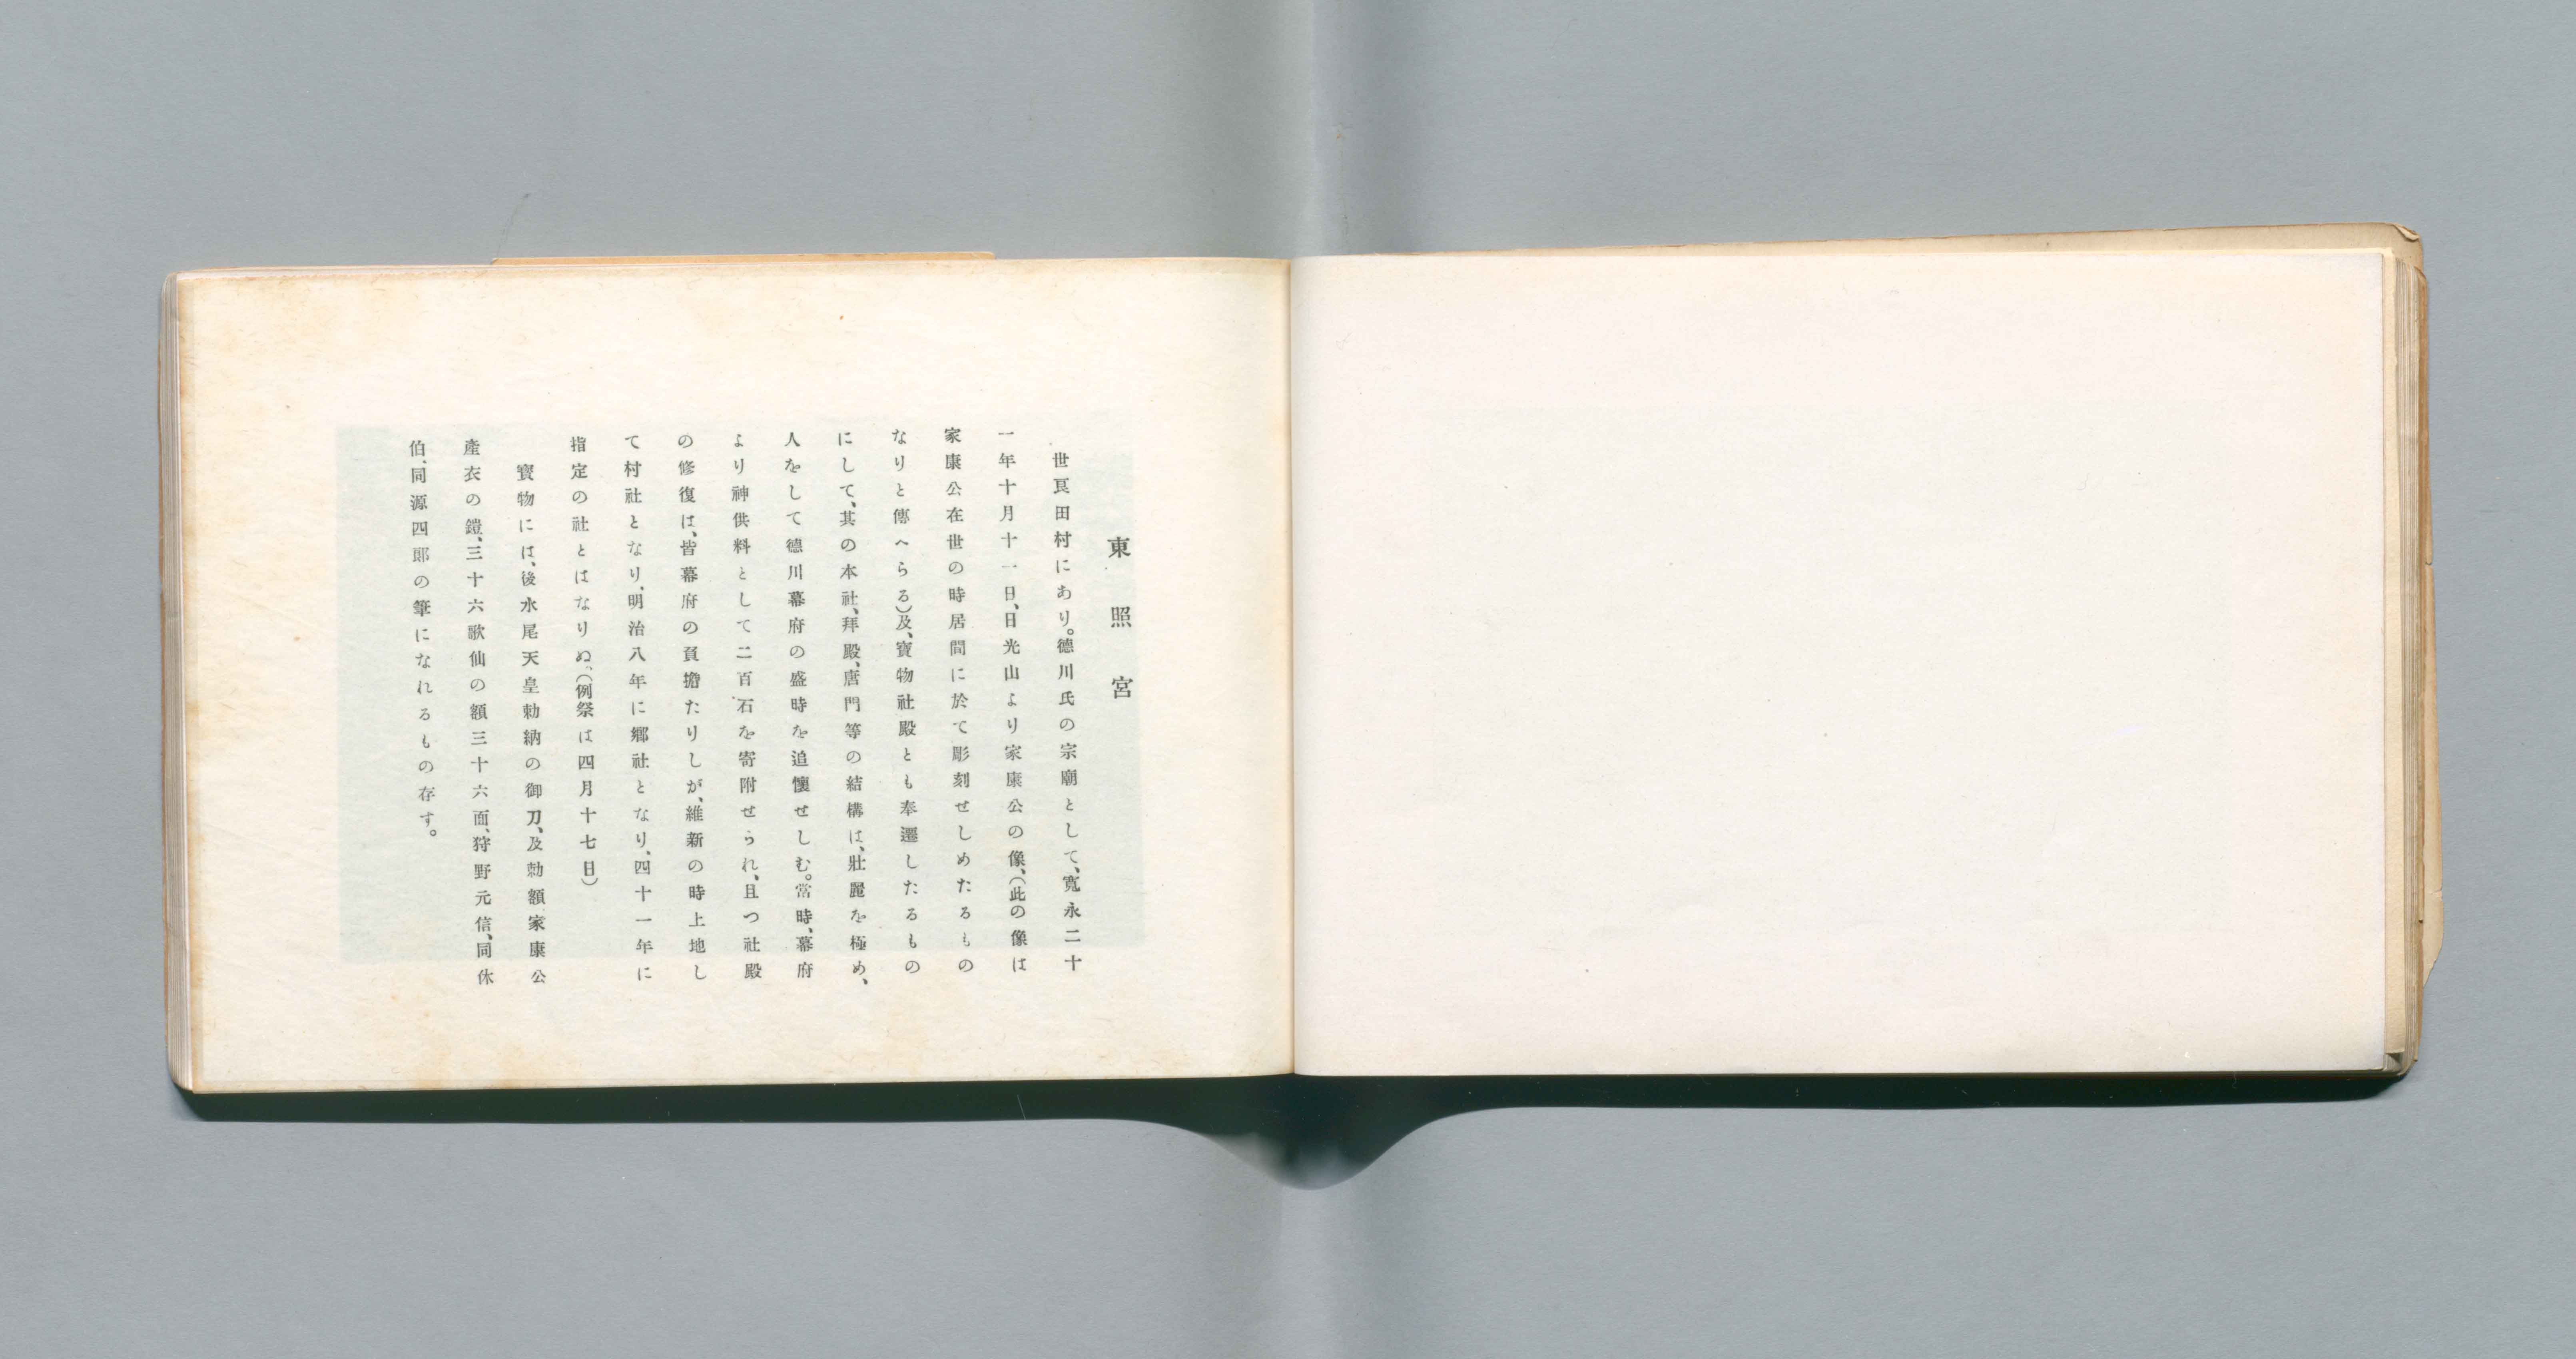 東照宮
世良田村にあり。德川氏の宗廟として、寬永二十
一年十月十一日、日光山より家康公の像、(此の像は
家康公在世の時居間に於て彫刻せしめたるもの
なりと傳へらる)及、寶物社殿とも奉遷したるもの
にして、其の本社、拜殿、唐門等の結構は、壯麗を極め、
人をして德川幕府の盛時を追懷せしむ。當時、幕府
より神供料として二百石を寄附せられ、且つ社殿
の修復は、皆幕府の負擔たりしが、維新の時上地し
て村社となり、明治八年に鄕社となり、四十一年に
指定の社とはなりぬ。(例祭は四月十七日)
寶物には、後水尾天皇勅納の御刀、及勅額家康公
產衣の鎧、三十六歌仙の額三十六面、狩野元信、同休
伯、同源四郞の筆になれるもの存す。